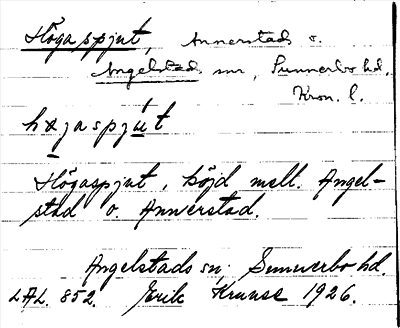 Högaspjut, Annerstads o.
Angelstads snr, Sunnerbo hd.
Kron. l.
högaspjut, höjd mell. Angel-
stad o. Annerstad.
Angelstads sn; Sunnerbo hd.
LAL. 852. Erik Kruuse 1926.